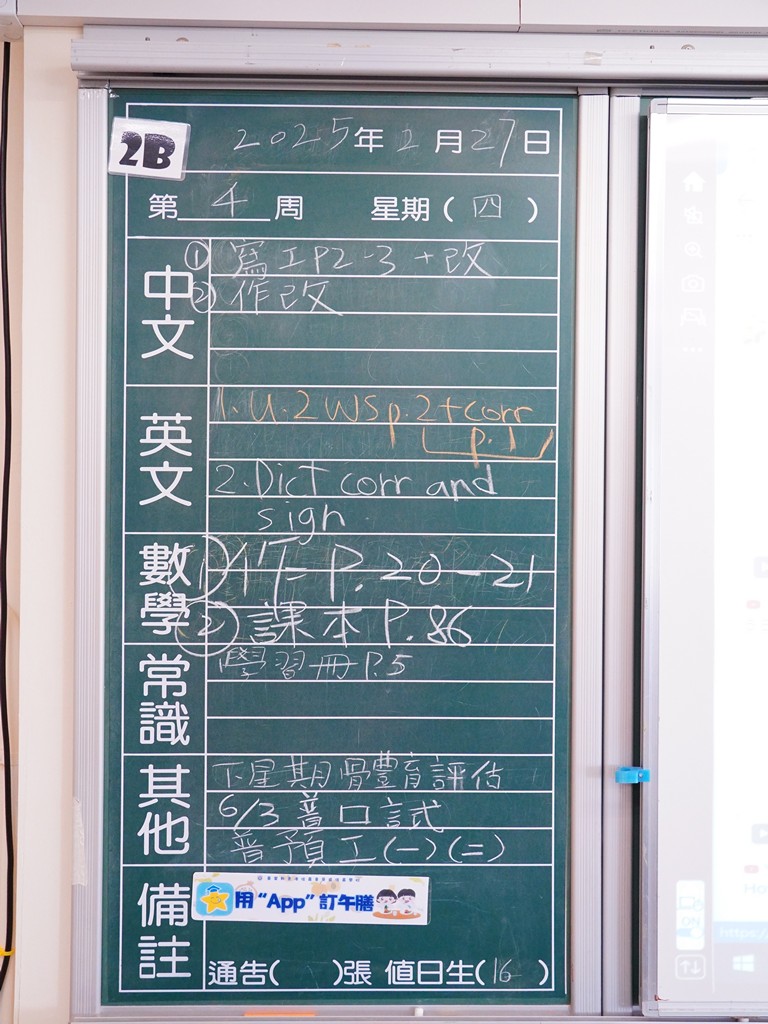 2B
2025年2月27日
第4周 星期(四)
中文
①寫工P2-3+改
②作改
英文
1.U.2 WS p.2+corr
p.1
2.Dict corr and
sign
數學
①作P.20-21
②課本P.86
常識
學習冊P.5
其他
下星期體育評估
6/3普口試
普預工(一)(二)
備註
用“App”訂午膳
通告( )張 值日生(16)
ON
https://